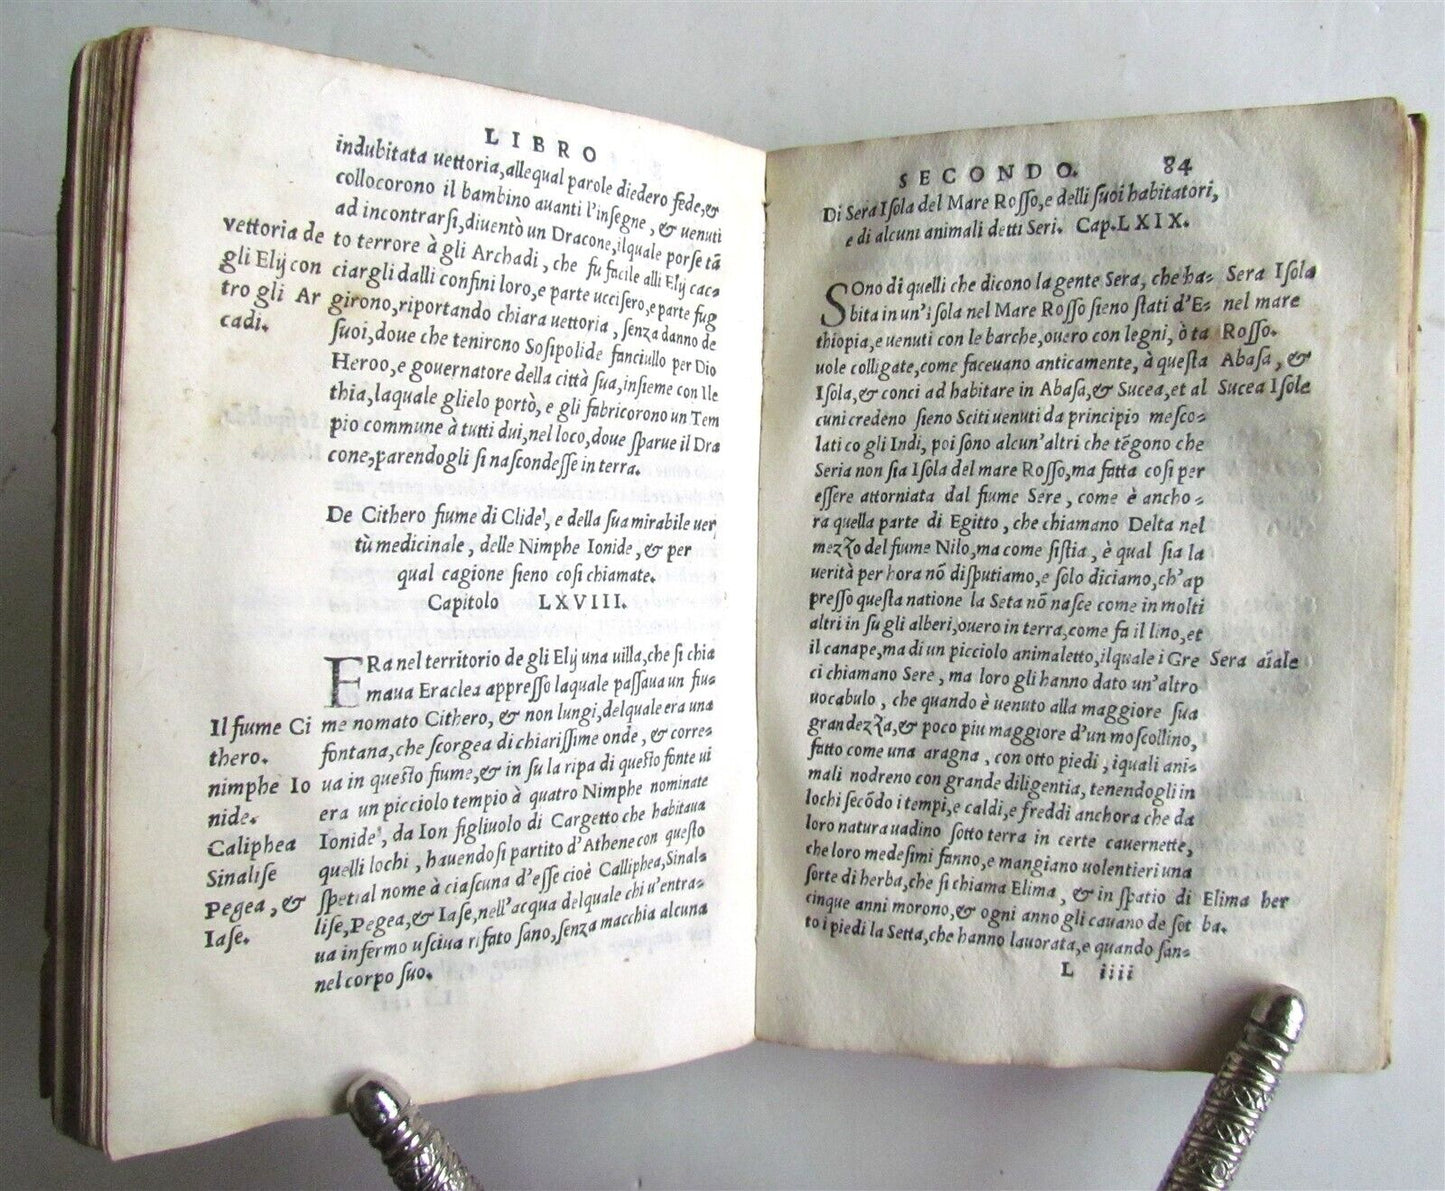 LIBRO
indubitata uettoria, allequal parole diedero fede, &
collocorono il bambino auanti l'insegne, & uenuti
ad incontrarsi, diuentò un Dracone, ilquale porse tã
vettoria de
to terrore à gli Archadi, che fu facile alli Elÿ cac-
gli Elÿ con
ciargli dalli confini loro, e parte uccisero, e parte fug
tro gli Ar
girono, riportando chiara uettoria, senza danno de
cadi.
suoi, doue che tenirono Sosipolide fanciullo per Dio
Heroo, e gouernatore della città sua, insieme con Ile
thia, laquale glielo portò, e gli fabricorono un Tem
pio commune à tutti dui, nel loco, doue sparue il Dra
cone, parendogli si nascondesse in terra.
De Cithero fiume di Clide, e della sua mirabile uer
tù medicinale, delle Nimphe Ionide, & per
qual cagione sieno cosi chiamate.
Capitolo LXVIII.
ERa nel territorio de gli Elÿ una uilla, che si chia
maua Eraclea appresso laquale passaua un fiu-
Il fiume Ci
me nomato Cithero, & non lungi, delquale era una
thero.
fontana, che scorgea di chiarissime onde, & corre-
nimphe Io
ua in questo fiume, & in su la ripa di questo fonte ui
nide.
era un picciolo tempio à quatro Nimphe nominate
Caliphea
Ionide, da Ion figliuolo di Cargetto che habitaua
Sinalise
quelli lochi, hauendosi partito d'Athene con questo
Pegea, &
spetial nome à ciascuna d'esse cioè Calliphea, Sinal-
Iase.
lise, Pegea, & Iase, nell'acqua delquale chi u'entra-
ua infermo usciua rifato sano, senza macchia alcuna
nel corpo suo.
SECONDO. 84
Di Sera Isola del Mare Rosso, e delli suoi habitatori,
e di alcuni animali detti Seri. Cap. LXIX.
SOno di quelli che dicono la gente Sera, che ha-
Sera Isola
bita in un'isola nel Mare Rosso sieno stati d'E-
nel mare
thiopia, e uenuti con le barche, ouero con legni, ò ta
Rosso.
uole colligate, come faceuano anticamente, à questa
Abasa, &
Isola, & conci ad habitare in Abasa, & Sucea, et al
Sucea Isole
cuni credeno sieno Sciti uenuti da principio mesco-
lati co gli Indi, poi sono alcun'altri che tẽgono che
Seria non sia Isola del mare Rosso, ma fatta cosi per
essere attorniata dal fiume Sere, come è ancho-
ra quella parte di Egitto, che chiamano Delta nel
mezzo del fiume Nilo, ma come si stia, è qual sia la
uerità per hora nõ disputiamo, e solo diciamo, ch'ap
presso questa natione la Seta nõ nasce come in molti
altri in su gli alberi, ouero in terra, come fa il lino, et
il canape, ma di un picciolo animaletto, ilquale i Gre
Sera aĩale
ci chiamano Sere, ma loro gli hanno dato un'altro
uocabulo, che quando è uenuto alla maggiore sua
grandezza, & poco piu maggiore d'un moscollino,
fatto come una aragna, con otto piedi, iquali ani-
mali nodreno con grande diligentia, tenendogli in
lochi secõdo i tempi, e caldi, e freddi anchora che da
loro natura uadino sotto terra in certe cauernette,
che loro medesimi fanno, e mangiano uolentieri una
sorte di herba, che si chiama Elima, & in spatio di
Elima her
cinque anni morono, & ogni anno gli cauano de sot
ba.
to i piedi la Setta, che hanno lauorata, e quando san-
L iiii